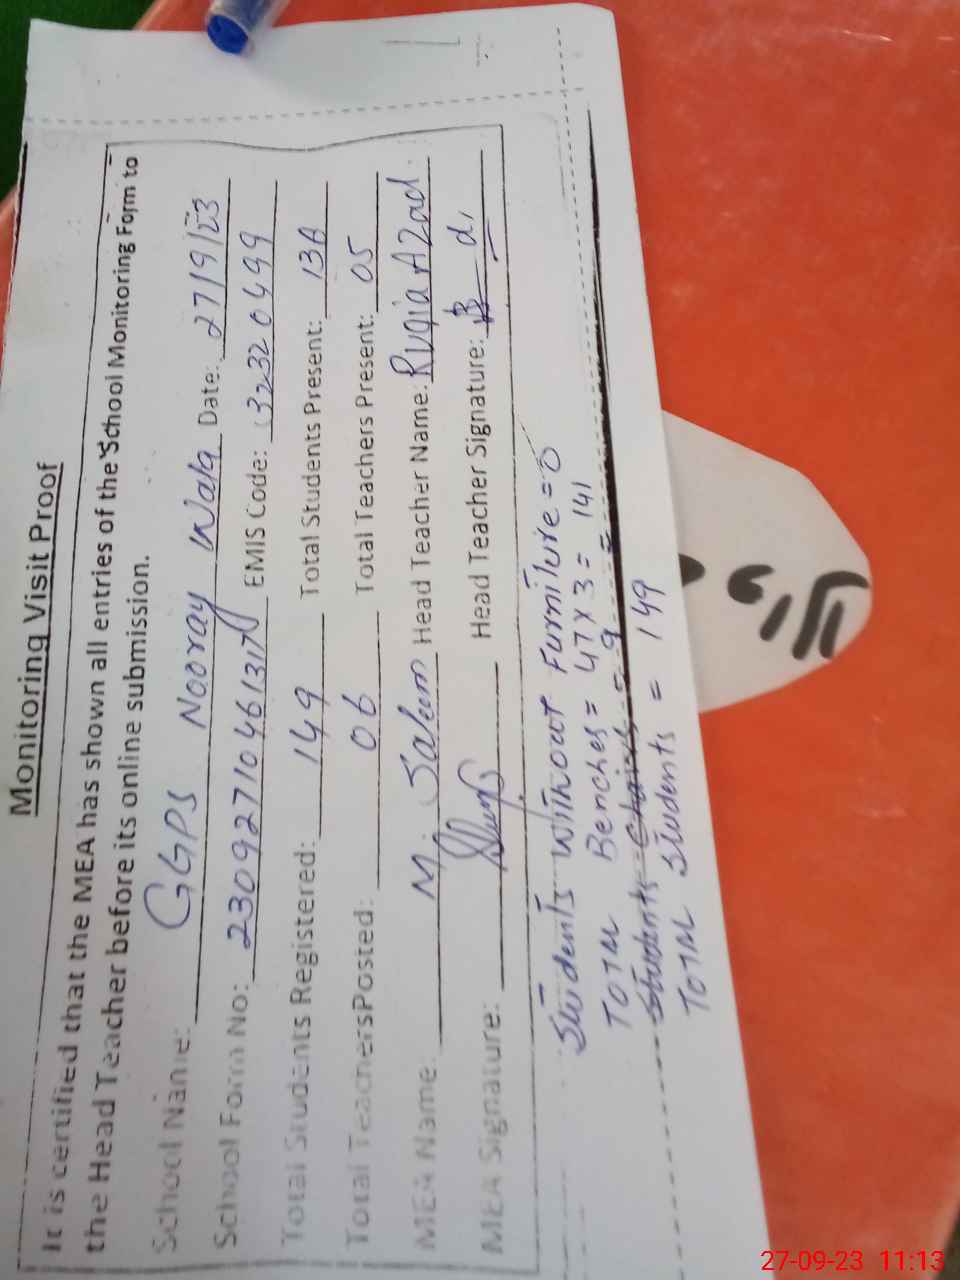 Monitoring Visit Proof
It is certified that the MEA has shown all entries of the School Monitoring Form to
the Head Teacher before its online submission.
School Name: GGPS Nooray Wala Date: 27/9/23
School Form No: 2309271046131 EMIS Code: 32320499
Total Students Registered: 149 Total Students Present: 138
Total TeachersPosted: 06 Total Teachers Present: 05
MEA Name: M. Saleem Head Teacher Name: Ruqia Azad.
MEA Signature: Head Teacher Signature:
Students without Furniture = 0
Total Benches = 47 x 3 = 141
Students Chairs = 9 =
Total Students = 149
27-09-23 11:13